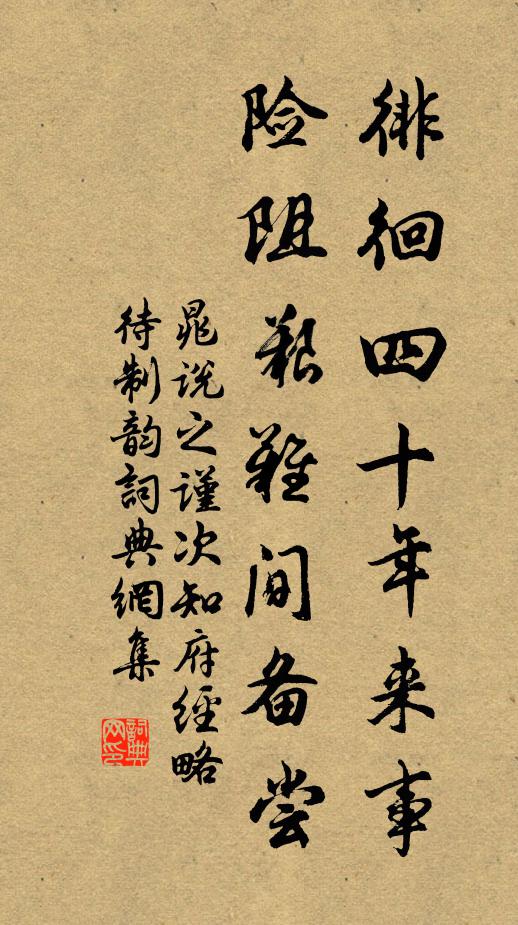 徘徊四十年来事
险阻艰难间备尝
晁说之谨次知府經略
待制韵詞典網集
詞典网印